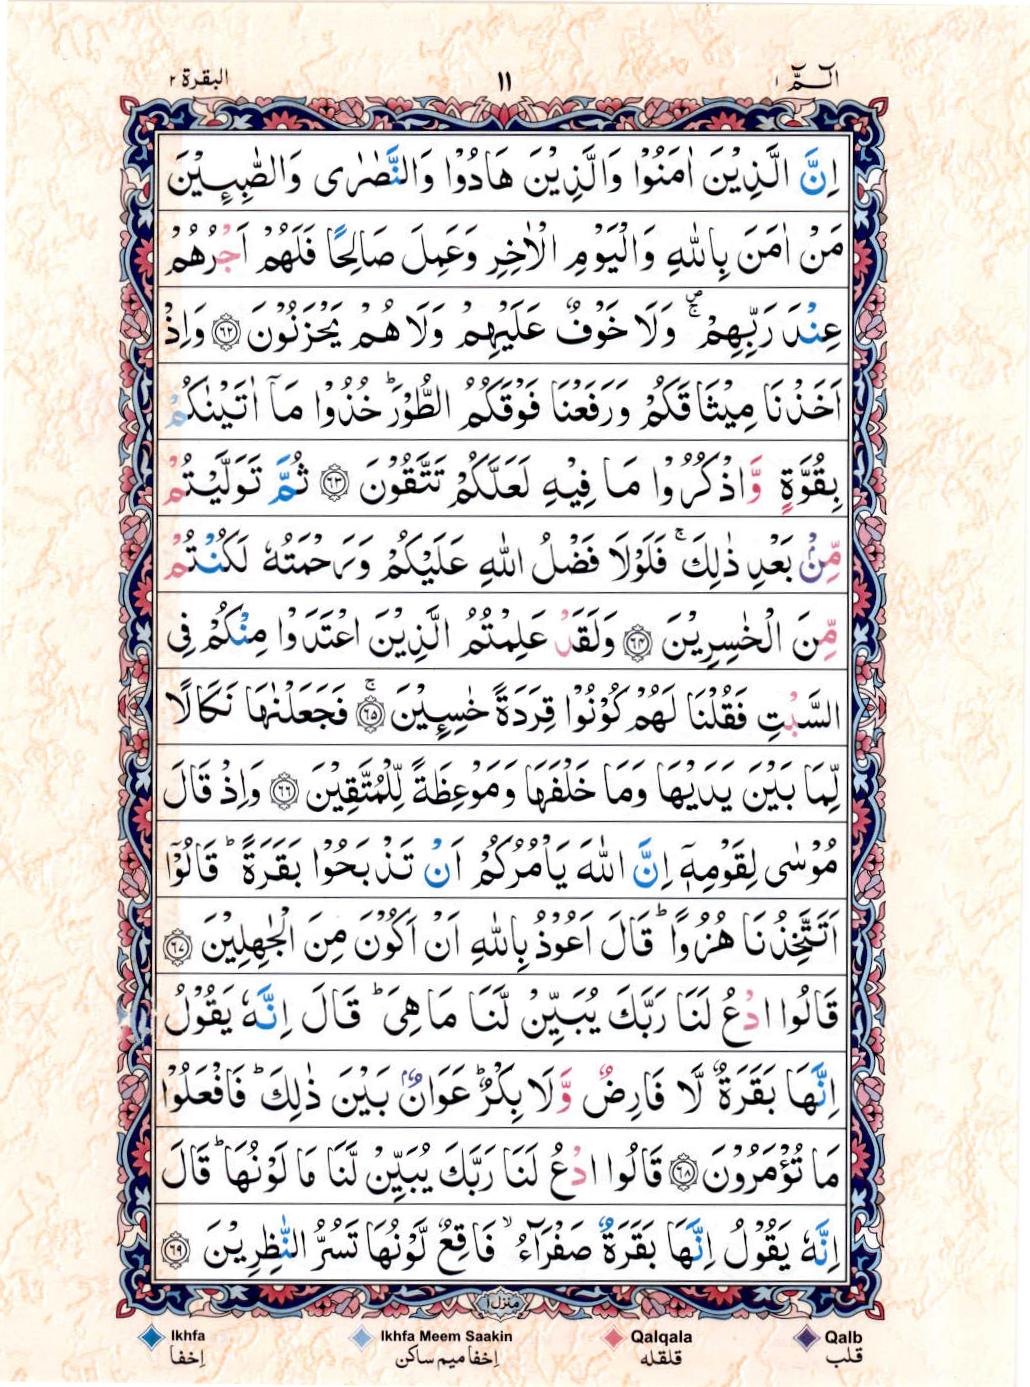 الٓمّٓ ١ ١١ البقرة ٢
اِنَّ الَّذِيْنَ اٰمَنُوْا وَالَّذِيْنَ هَادُوْا وَالنَّصٰرٰى وَالصّٰبِـِٕيْنَ
مَنْ اٰمَنَ بِاللّٰهِ وَالْيَوْمِ الْاٰخِرِ وَعَمِلَ صَالِحًا فَلَهُمْ اَجْرُهُمْ
عِنْدَ رَبِّهِمْ ۚۖ وَلَا خَوْفٌ عَلَيْهِمْ وَلَا هُمْ يَحْزَنُوْنَ ﴿٦٢﴾ وَاِذْ
اَخَذْنَا مِيْثَاقَكُمْ وَرَفَعْنَا فَوْقَكُمُ الطُّوْرَ ؕ خُذُوْا مَاۤ اٰتَيْنٰكُمْ
بِقُوَّةٍ وَّاذْكُرُوْا مَا فِيْهِ لَعَلَّكُمْ تَتَّقُوْنَ ﴿٦٣﴾ ثُمَّ تَوَلَّيْتُمْ
مِّنْۢ بَعْدِ ذٰلِكَ ۚ فَلَوْلَا فَضْلُ اللّٰهِ عَلَيْكُمْ وَرَحْمَتُهٗ لَكُنْتُمْ
مِّنَ الْخٰسِرِيْنَ ﴿٦٤﴾ وَلَقَدْ عَلِمْتُمُ الَّذِيْنَ اعْتَدَوْا مِنْكُمْ فِى
السَّبْتِ فَقُلْنَا لَهُمْ كُوْنُوْا قِرَدَةً خٰسِـِٕيْنَ ﴿٦٥﴾ ۚ فَجَعَلْنٰهَا نَكَالًا
لِّمَا بَيْنَ يَدَيْهَا وَمَا خَلْفَهَا وَمَوْعِظَةً لِّلْمُتَّقِيْنَ ﴿٦٦﴾ وَاِذْ قَالَ
مُوْسٰى لِقَوْمِهٖۤ اِنَّ اللّٰهَ يَاْمُرُكُمْ اَنْ تَذْبَحُوْا بَقَرَةً ؕ قَالُوْۤا
اَتَتَّخِذُنَا هُزُوًا ؕ قَالَ اَعُوْذُ بِاللّٰهِ اَنْ اَكُوْنَ مِنَ الْجٰهِلِيْنَ ﴿٦٧﴾
قَالُوا ادْعُ لَنَا رَبَّكَ يُبَيِّنْ لَّنَا مَا هِىَ ؕ قَالَ اِنَّهٗ يَقُوْلُ
اِنَّهَا بَقَرَةٌ لَّا فَارِضٌ وَّلَا بِكْرٌ ؕ عَوَانٌۢ بَيْنَ ذٰلِكَ ؕ فَافْعَلُوْا
مَا تُؤْمَرُوْنَ ﴿٦٨﴾ قَالُوا ادْعُ لَنَا رَبَّكَ يُبَيِّنْ لَّنَا مَا لَوْنُهَا ؕ قَالَ
اِنَّهٗ يَقُوْلُ اِنَّهَا بَقَرَةٌ صَفْرَآءُ ۙ فَاقِعٌ لَّوْنُهَا تَسُرُّ النّٰظِرِيْنَ ﴿٦٩﴾
منزل ١
Ikhfa Ikhfa Meem Saakin Qalqala Qalb
اِخفا اِخفا میم ساکن قلقله قلب